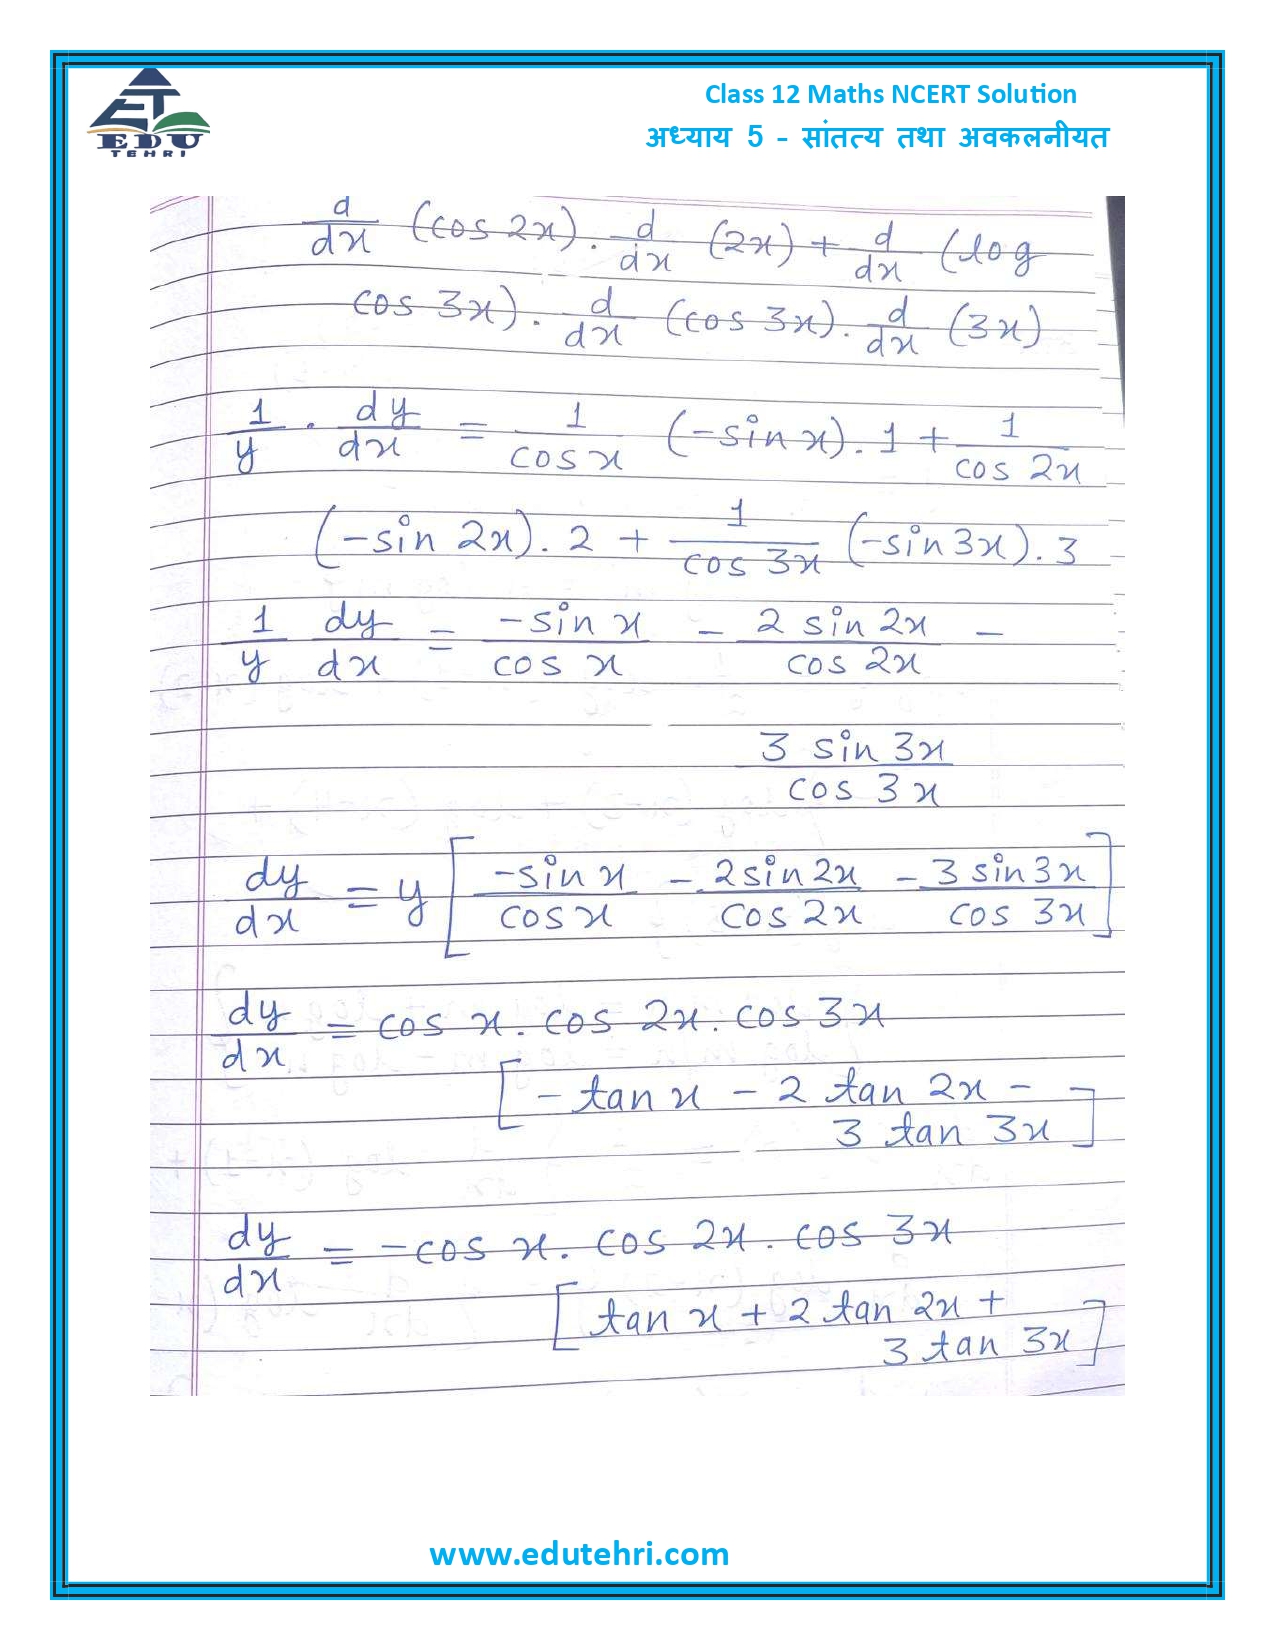 EDU
TEHRI
Class 12 Maths NCERT Solution
अध्याय 5 - सांतत्य तथा अवकलनीयत
d/dx (cos 2x) . d/dx (2x) + d/dx (log
cos 3x) . d/dx (cos 3x) . d/dx (3x)
1/y . dy/dx = 1/cos x (-sin x) . 1 + 1/cos 2x
(-sin 2x) . 2 + 1/cos 3x (-sin 3x) . 3
1/y dy/dx = -sin x/cos x - 2 sin 2x/cos 2x -
3 sin 3x/cos 3x
dy/dx = y [-sin x/cos x - 2 sin 2x/cos 2x - 3 sin 3x/cos 3x]
dy/dx = cos x . cos 2x . cos 3x
[- tan x - 2 tan 2x -
3 tan 3x]
dy/dx = - cos x . cos 2x . cos 3x
[tan x + 2 tan 2x +
3 tan 3x]
www.edutehri.com